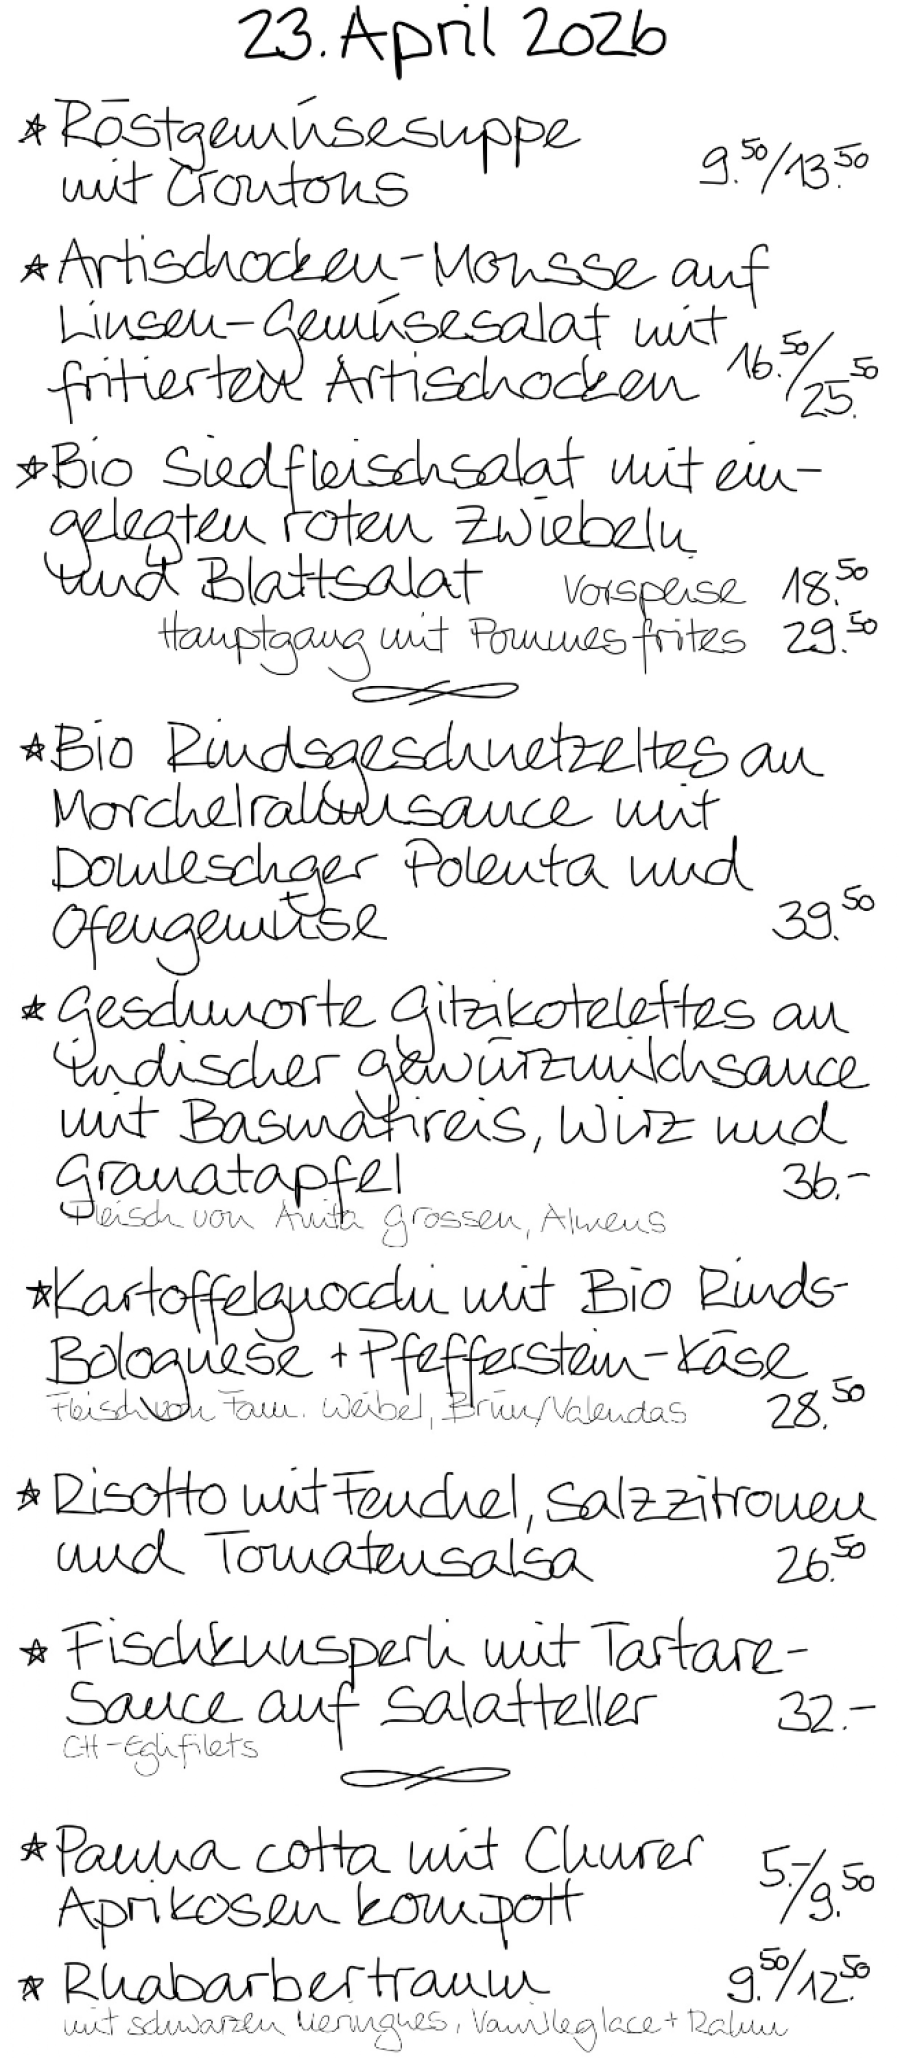 23. April 2026
* Röstgemüsesuppe
mit Croutons 9.50/13.50
* Artischocken-Mousse auf
Linsen-Gemüsesalat mit
fritierten Artischocken 16.50/25.50
* Bio Siedfleischsalat mit ein-
gelegten roten Zwiebeln
und Blattsalat Vorspeise 18.50
Hauptgang mit Pommes frites 29.50
* Bio Rindsgeschnetzeltes an
Morchelrahmsauce mit
Domleschger Polenta und
Ofengemüse 39.50
* Geschmorte Gitzikotelettes an
indischer Gewürzmilchsauce
mit Basmatireis, Wirz und
Granatapfel 36.-
Fleisch von Anita Grossen, Almens
* Kartoffelgnocchi mit Bio Rinds-
Bolognese + Pfefferstein-Käse
Fleisch von Fam. Weibel, Brün/Valendas 28.50
* Risotto mit Fenchel, Salzzitronen
und Tomatensalsa 26.50
* Fischknusperli mit Tartare-
Sauce auf Salatteller 32.-
CH-Eglifilets
* Panna cotta mit Churer
Aprikosenkompott 5.-/9.50
* Rhabarbertraum 9.50/12.50
mit schwarzen Meringues, Vanilleglace + Rahm